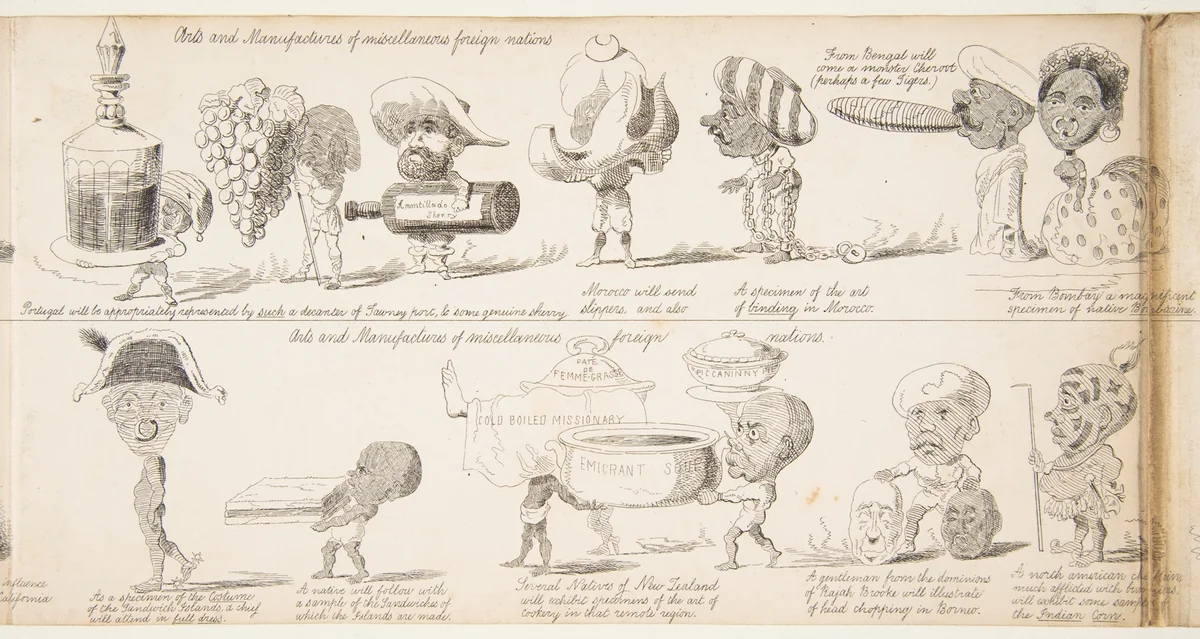 Arts and Manufactures of miscellaneous foreign nations
From Bengal will
come a monster Cheroot
(perhaps a few Tigers.)
Amontillado
Sherry
Portugal will be appropriately represented by such a decanter of Tawney port, & some genuine sherry
Morocco will send
slippers, and also
A specimen of the art
of binding in Morocco.
From Bombay a magnificent
specimen of native Bombazine.
Arts and Manufactures of miscellaneous foreign nations.
PATÉ
DE
FEMME-GRASSE
PICCANINNY PIE
COLD BOILED MISSIONARY
EMIGRANT SOUP
influence
California
As a specimen of the Costume
of the Sandwich Islands, a chief
will attend in full dress.
A native will follow with
a sample of the Sandwiches of
which the Islands are made.
Several Natives of New Zealand
will exhibit specimens of the art of
cookery in that remote region.
A gentleman from the dominions
of Rajah Brooke will illustrate
of head chopping in Borneo.
A north american
much afflicted with
will exhibit some
the Indian Corn.